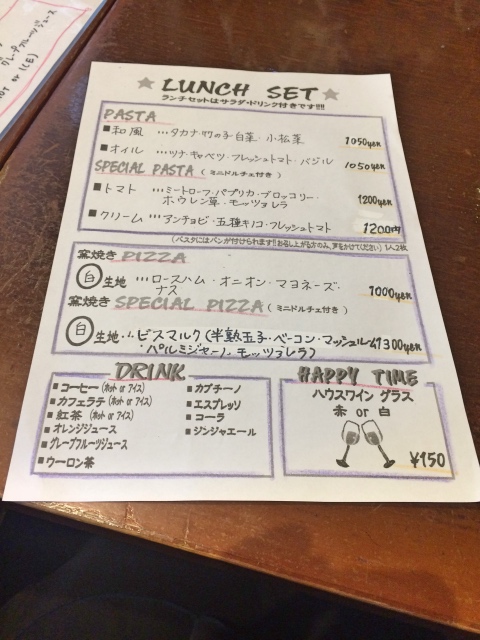 グレープフルーツジュース
HOT or ICE)
★ LUNCH SET ★
ランチセットはサラダ・ドリンク付きです!!!
PASTA
■和風 …タカナ・竹の子・白菜・小松菜 1050yen
■オイル …ツナ・キャベツ・フレッシュトマト・バジル 1050yen
SPECIAL PASTA (ミニドルチェ付き)
■トマト …ミートローフ・パプリカ・ブロッコリー・
ホウレン草・モッツァレラ 1200yen
■クリーム …アンチョビ・五種キノコ・フレッシュトマト 1200円
(パスタにはパンが付けられます!!お召し上がる方のみ、声をかけてください) 1人2枚
窯焼き PIZZA
白 生地 …ロースハム・オニオン・マヨネーズ・
ナス 1000yen
窯焼き SPECIAL PIZZA (ミニドルチェ付き)
白 生地… ビスマルク (半熟玉子・ベーコン・マッシュルム 1300yen
パルミジャーノ モッツァレラ)
DRINK
■コーヒー (ホット or アイス)
■カフェラテ (ホット or アイス)
■紅茶 (ホット or アイス)
■オレンジジュース
■グレープフルーツジュース
■ウーロン茶
■カプチーノ
■エスプレッソ
■コーラ
■ジンジャエール
HAPPY TIME
ハウスワイン グラス
赤 or 白
¥150